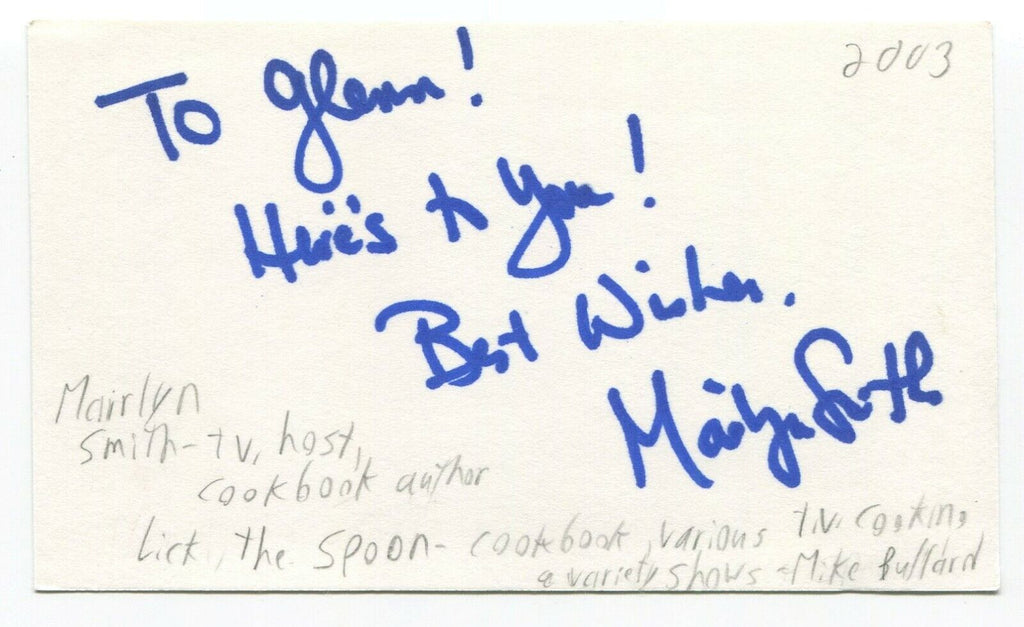 2003
To Glenn!
Here's to You!
Best Wishes.
Mairlyn Smith
Mairlyn
Smith - TV, host,
cookbook author
Lick the Spoon - cookbook, various t.v. cooking
& variety shows - Mike Bullard